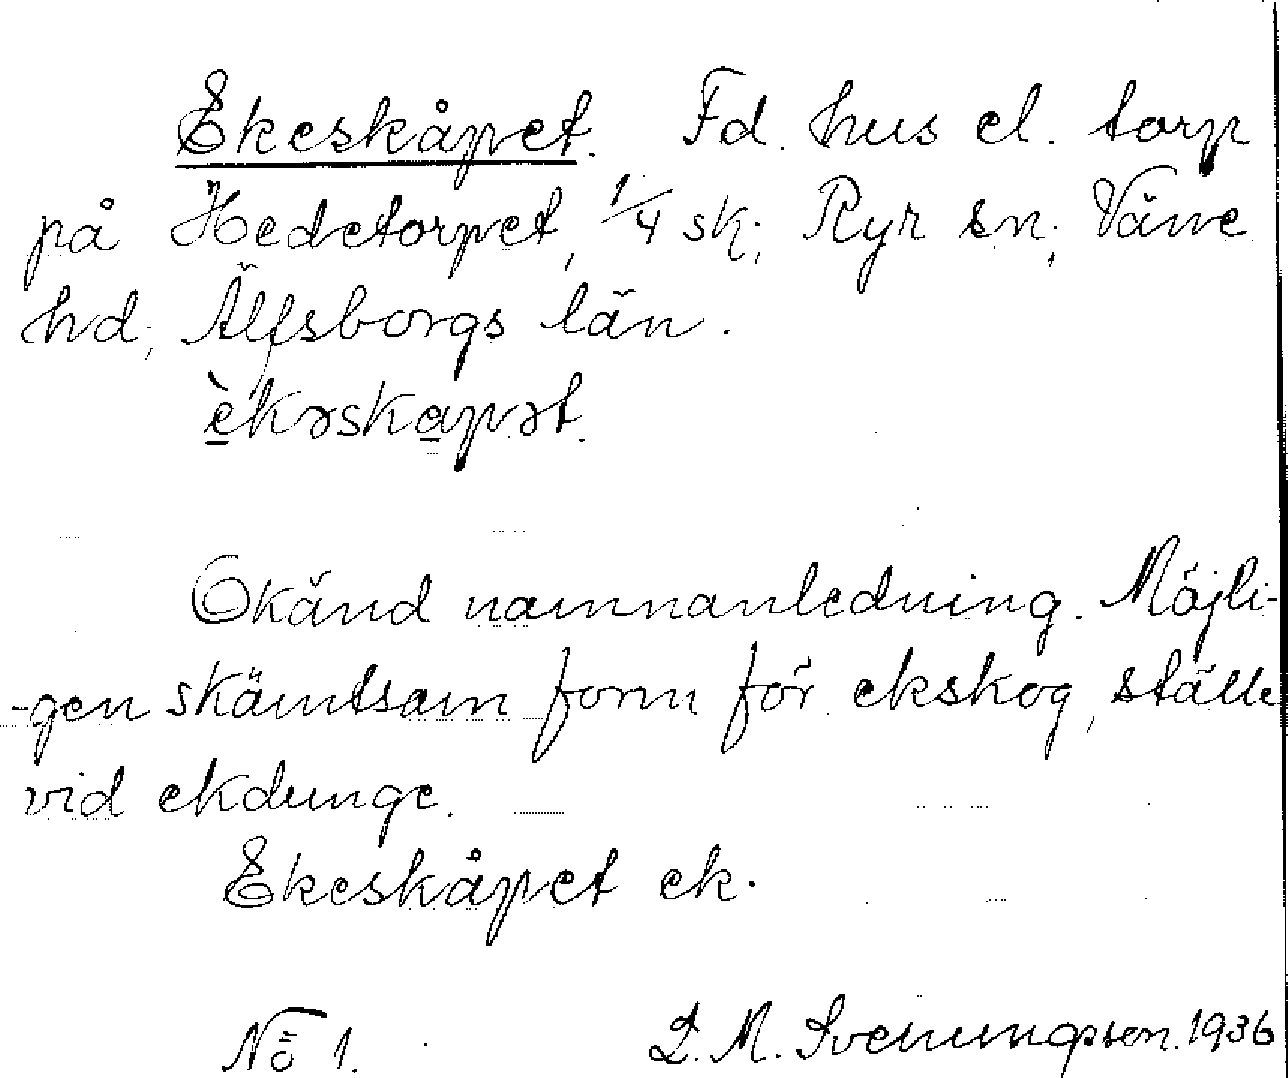 Ekeskåpet. Fd. hus el. torp
på Hedetorpet, 1/4 sk; Ryr sn; Väne
hd; Älfsborgs län.
èkəskapət.
Okänd namnanledning. Möjli-
-gen skämtsam form för ekskog, ställe
vid ekdunge.
Ekeskåpet ek.
No 1. L. M. Svenungson. 1936